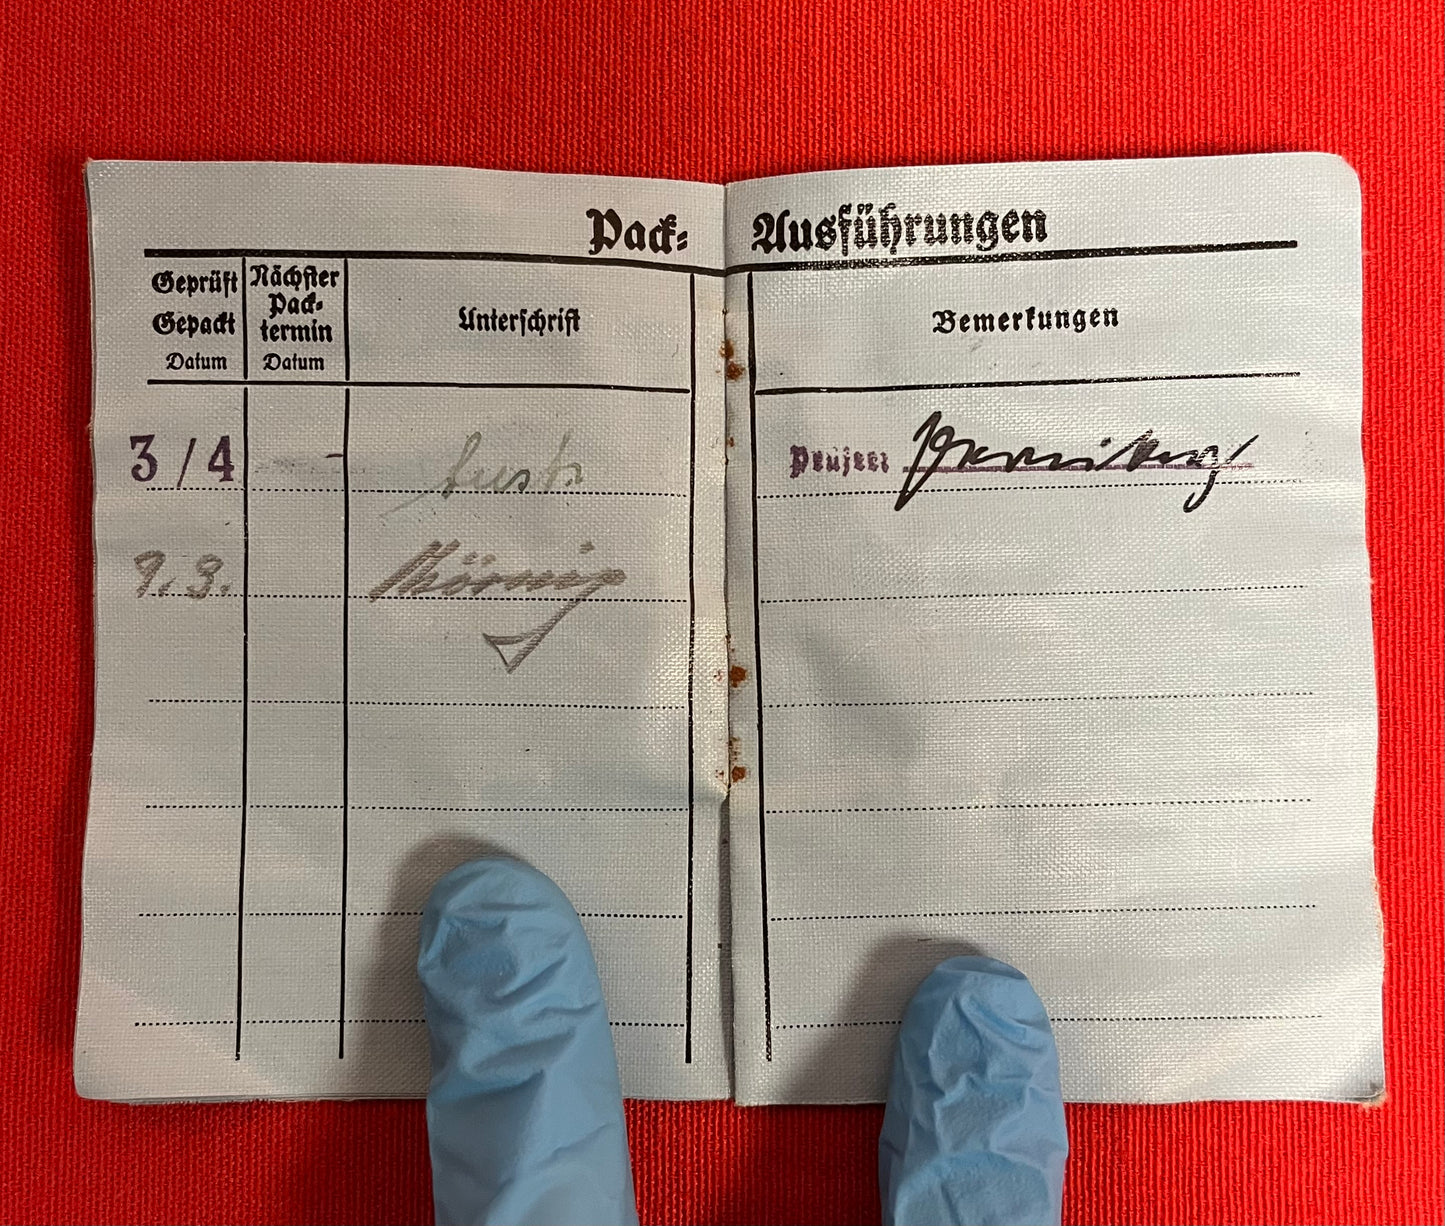 Pack- Ausführungen
Geprüft
Gepackt
Datum
Nächster
Pack-
termin
Datum
Unterschrift
Bemerkungen
3/4 -
Prüfer:
9.3.